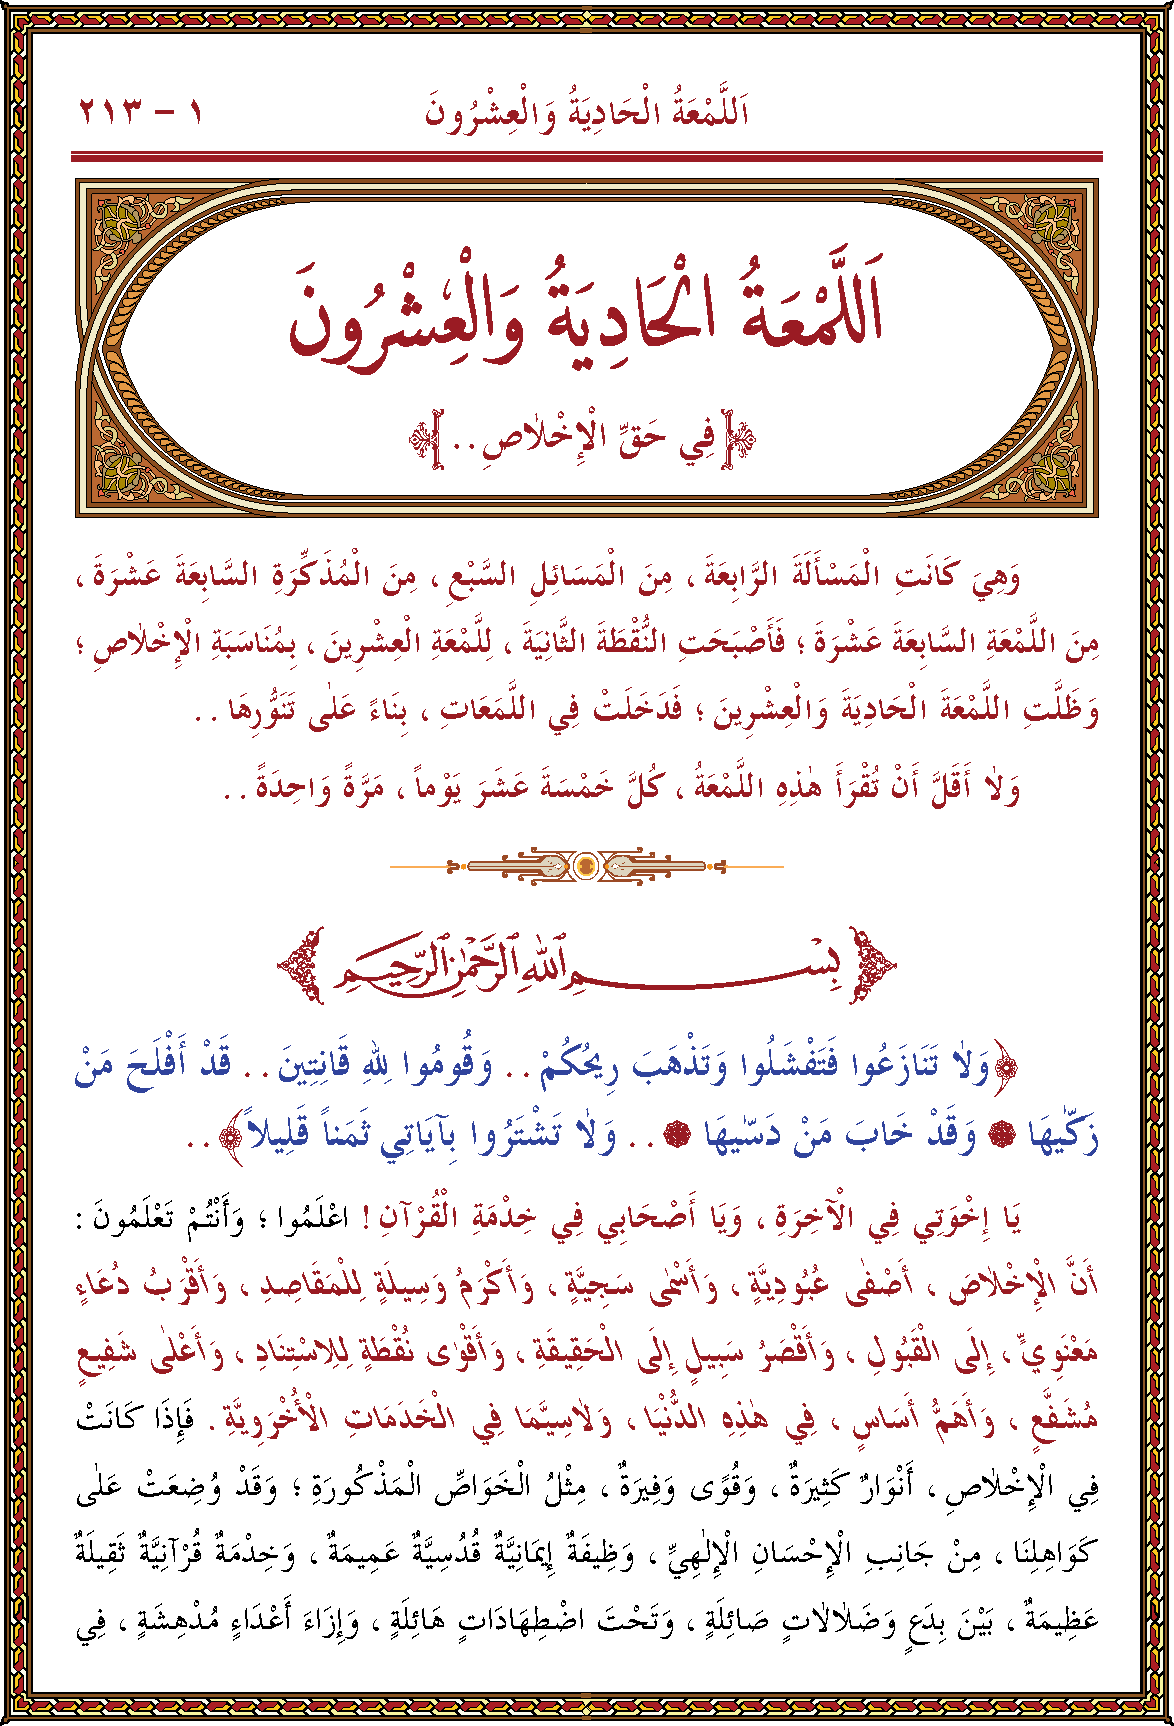 اَللَّمْعَةُ الْحَادِيَةُ وَالْعِشْرُونَ
١ – ٢١٣
اَللَّمْعَةُ الْحَادِيَةُ وَالْعِشْرُونَ
﴿فِي حَقِّ الْإِخْلَاصِ . . ﴾
وَهِيَ كَانَتِ الْمَسْأَلَةَ الرَّابِعَةَ ، مِنَ الْمَسَائِلِ السَّبْعِ ، مِنَ الْمُذَكِّرَةِ السَّابِعَةَ عَشْرَةَ ،
مِنَ اللَّمْعَةِ السَّابِعَةَ عَشْرَةَ ؛ فَأَصْبَحَتِ النُّقْطَةَ الثَّانِيَةَ ، لِلَّمْعَةِ الْعِشْرِينَ ، بِمُنَاسَبَةِ الْإِخْلَاصِ ؛
وَظَلَّتِ اللَّمْعَةَ الْحَادِيَةَ وَالْعِشْرِينَ ؛ فَدَخَلَتْ فِي اللَّمَعَاتِ ، بِنَاءً عَلٰى تَنَوُّرِهَا . .
وَلَا أَقَلَّ أَنْ تُقْرَأَ هٰذِهِ اللَّمْعَةُ ، كُلَّ خَمْسَةَ عَشَرَ يَوْماً ، مَرَّةً وَاحِدَةً . .
بِسْمِ اللّٰهِ الرَّحْمٰنِ الرَّحِيمِ
﴿وَلَا تَنَازَعُوا فَتَفْشَلُوا وَتَذْهَبَ رِيحُكُمْ . . وَقُومُوا لِلّٰهِ قَانِتِينَ . . قَدْ أَفْلَحَ مَنْ
زَكّٰيهَا ۞ وَقَدْ خَابَ مَنْ دَسّٰيهَا ۞ . . وَلَا تَشْتَرُوا بِآيَاتِي ثَمَناً قَلِيلاً﴾ . .
يَا إِخْوَتِي فِي الْآخِرَةِ ، وَيَا أَصْحَابِي فِي خِدْمَةِ الْقُرْآنِ ! اعْلَمُوا ؛ وَأَنْتُمْ تَعْلَمُونَ :
أَنَّ الْإِخْلَاصَ ، أَصْفٰى عُبُودِيَّةٍ ، وَأَسْمٰى سَجِيَّةٍ ، وَأَكْرَمُ وَسِيلَةٍ لِلْمَقَاصِدِ ، وَأَقْرَبُ دُعَاءٍ
مَعْنَوِيٍّ ، إِلَى الْقَبُولِ ، وَأَقْصَرُ سَبِيلٍ إِلَى الْحَقِيقَةِ ، وَأَقْوٰى نُقْطَةٍ لِلِاسْتِنَادِ ، وَأَعْلٰى شَفِيعٍ
مُشَفَّعٍ ، وَأَهَمُّ أَسَاسٍ ، فِي هٰذِهِ الدُّنْيَا ، وَلَاسِيَّمَا فِي الْخَدَمَاتِ الْأُخْرَوِيَّةِ . فَإِذَا كَانَتْ
فِي الْإِخْلَاصِ ، أَنْوَارٌ كَثِيرَةٌ ، وَقُوًى وَفِيرَةٌ ، مِثْلُ الْخَوَاصِّ الْمَذْكُورَةِ ؛ وَقَدْ وُضِعَتْ عَلٰى
كَوَاهِلِنَا ، مِنْ جَانِبِ الْإِحْسَانِ الْإِلٰهِيِّ ، وَظِيفَةٌ إِيمَانِيَّةٌ قُدُسِيَّةٌ عَمِيمَةٌ ، وَخِدْمَةٌ قُرْآنِيَّةٌ ثَقِيلَةٌ
عَظِيمَةٌ ، بَيْنَ بِدَعٍ وَضَلَالَاتٍ صَائِلَةٍ ، وَتَحْتَ اضْطِهَادَاتٍ هَائِلَةٍ ، وَإِزَاءَ أَعْدَاءٍ مُدْهِشَةٍ ، فِي